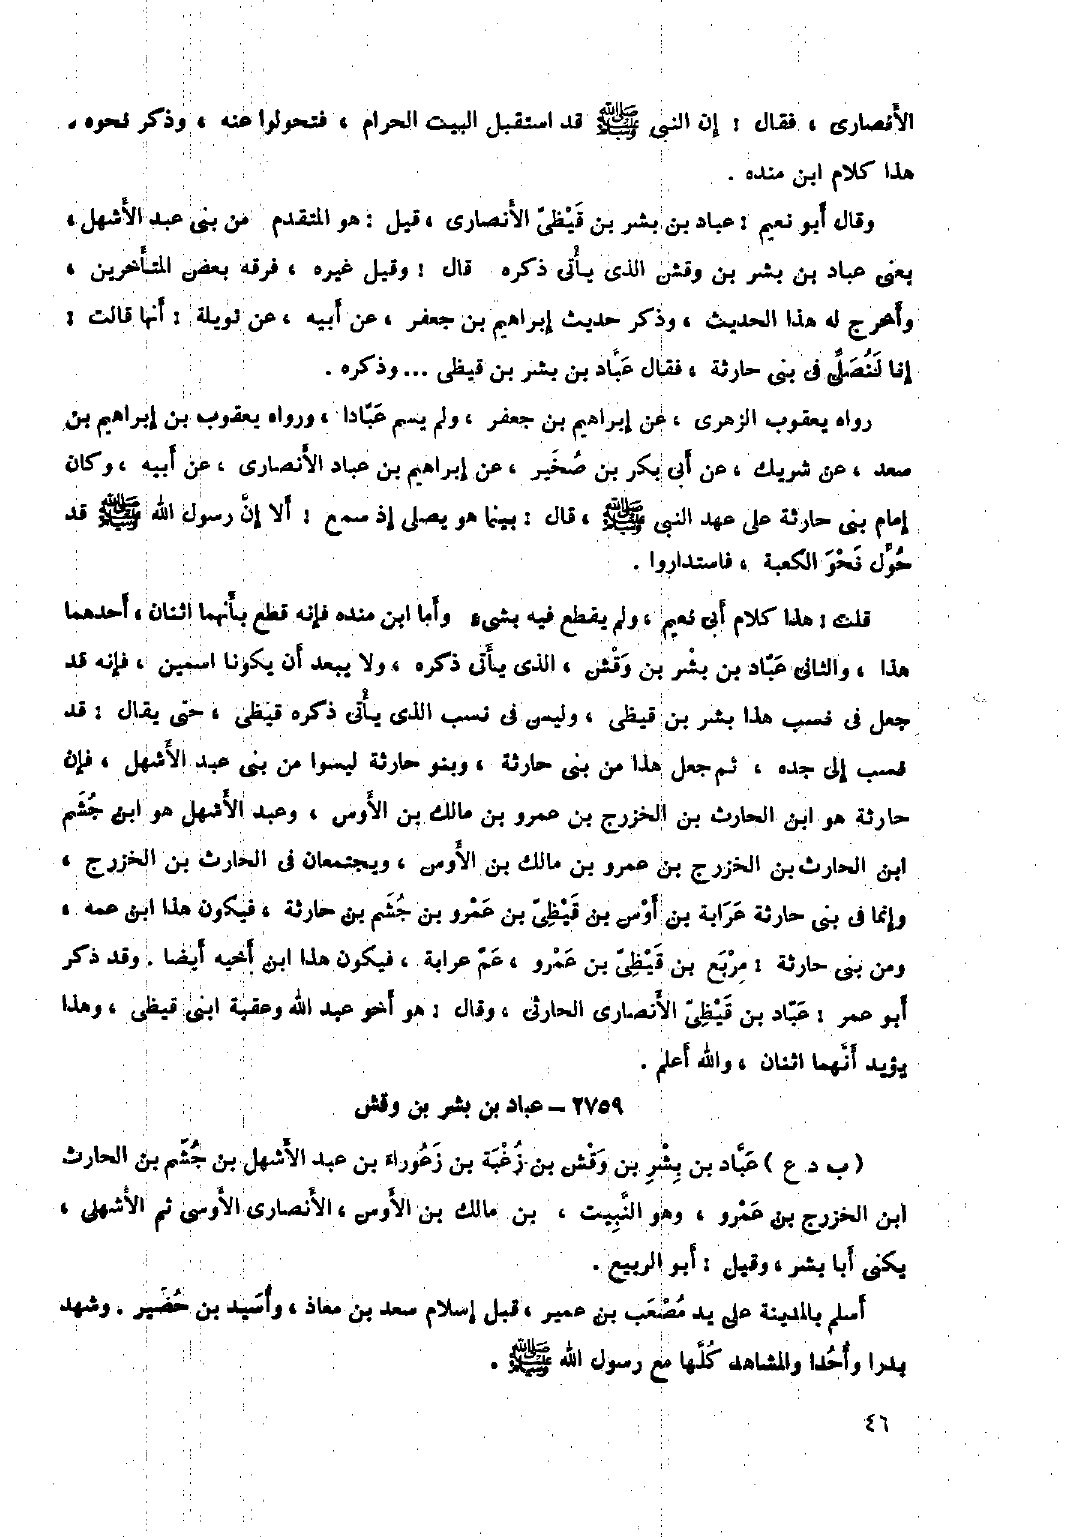 الأَنصارى ، فقال : إن النبى ﷺ قد استقبل البيت الحرام ، فتحولوا عنه ، وذكر نحوه .
هذا كلام ابن منده .
وقال أَبو نعيم : عباد بن بشر بن قَيْظِىّ الأَنصارى ، قيل : هو المتقدم من بنى عبد الأَشهل ،
يعنى عباد بن بشر بن وقش الذى يأْتى ذكره قال : وقيل غيره ، فرقه بعض المتأَخرين ،
وأَخرج له هذا الحديث ، وذكر حديث إبراهيم بن جعفر ، عن أَبيه ، عن نويلة : أَنها قالت :
إنا لَنُصَلِّى فى بنى حارثة ، فقال عَبَّاد بن بشر بن قيظى ... وذكره .
رواه يعقوب الزهرى ، عن إبراهيم بن جعفر ، ولم يسم عَبَّادا ، ورواه يعقوب بن إبراهيم بن
سعد ، عن شريك ، عن أَبى بكر بن صُخَير ، عن إبراهيم بن عباد الأَنصارى ، عن أَبيه ، وكان
إمام بنى حارثة على عهد النبى ﷺ ، قال : بينما هو يصلى إذ سمع : أَلا إنَّ رسول الله ﷺ قد
حُوِّل نَحْوَ الكعبة ، فاستداروا .
قلت : هذا كلام أَبى نعيم ، ولم يقطع فيه بشىء وأَما ابن منده فإنه قطع بأَنهما اثنان ، أَحدهما
هذا ، والثانى عَبّاد بن بِشْر بن وَقْش ، الذى يأْتى ذكره ، ولا يبعد أَن يكونا اسمين ، فإنه قد
جعل فى نسب هذا بشر بن قيظى ، وليس فى نسب الذى يأْتى ذكره قيظى ، حتى يقال : قد
نسب إلى جده ، ثم جعل هذا من بنى حارثة ، وبنو حارثة ليسوا من بنى عبد الأَشهل ، فإن
حارثة هو ابن الحارث بن الخزرج بن عمرو بن مالك بن الأَوس ، وعبد الأَشهل هو ابن جُشَم
ابن الحارث بن الخزرج بن عمرو بن مالك بن الأَوس ، ويجتمعان فى الحارث بن الخزرج ،
وإنما فى بنى حارثة عَرَابة بن أَوْس بن قَيْظِىّ بن عَمْرو بن جُشَم بن حارثة ، فيكون هذا ابن عمه ،
ومن بنى حارثة : مِرْبَع بن قَيْظِىّ بن عَمْرو ، عَمّ عرابة ، فيكون هذا ابن أَخيه أَيضا . وقد ذكر
أَبو عمر : عَبّاد بن قَيْظِىّ الأَنصارى الحارثى ، وقال : هو أَخو عبد الله وعقبة ابنى قيظى ، وهذا
يؤيد أَنَّهما اثنان ، والله أَعلم .
٢٧٥٩ – عباد بن بشر بن وقش
( ب د ع ) عَبَّاد بن بِشْرِ بن وَقْش بن زُغْبَة بن زَعُوراءَ بن عبد الأَشهل بن جُشَم بن الحارث
ابن الخزرج بن عَمْرو ، وهو النَّبِيت ، بن مالك بن الأَوس ، الأَنصارى الأَوسى ثم الأَشهلى ،
يكنى أَبا بشر ، وقيل : أَبو الربيع .
أَسلم بالمدينة على يد مُصْعَب بن عمير ، قبل إسلام سعد بن معاذ ، وأُسَيد بن حُضَير . وشهد
بدرا وأُحُدا والمشاهد كُلَّها مع رسول الله ﷺ .
٤٦